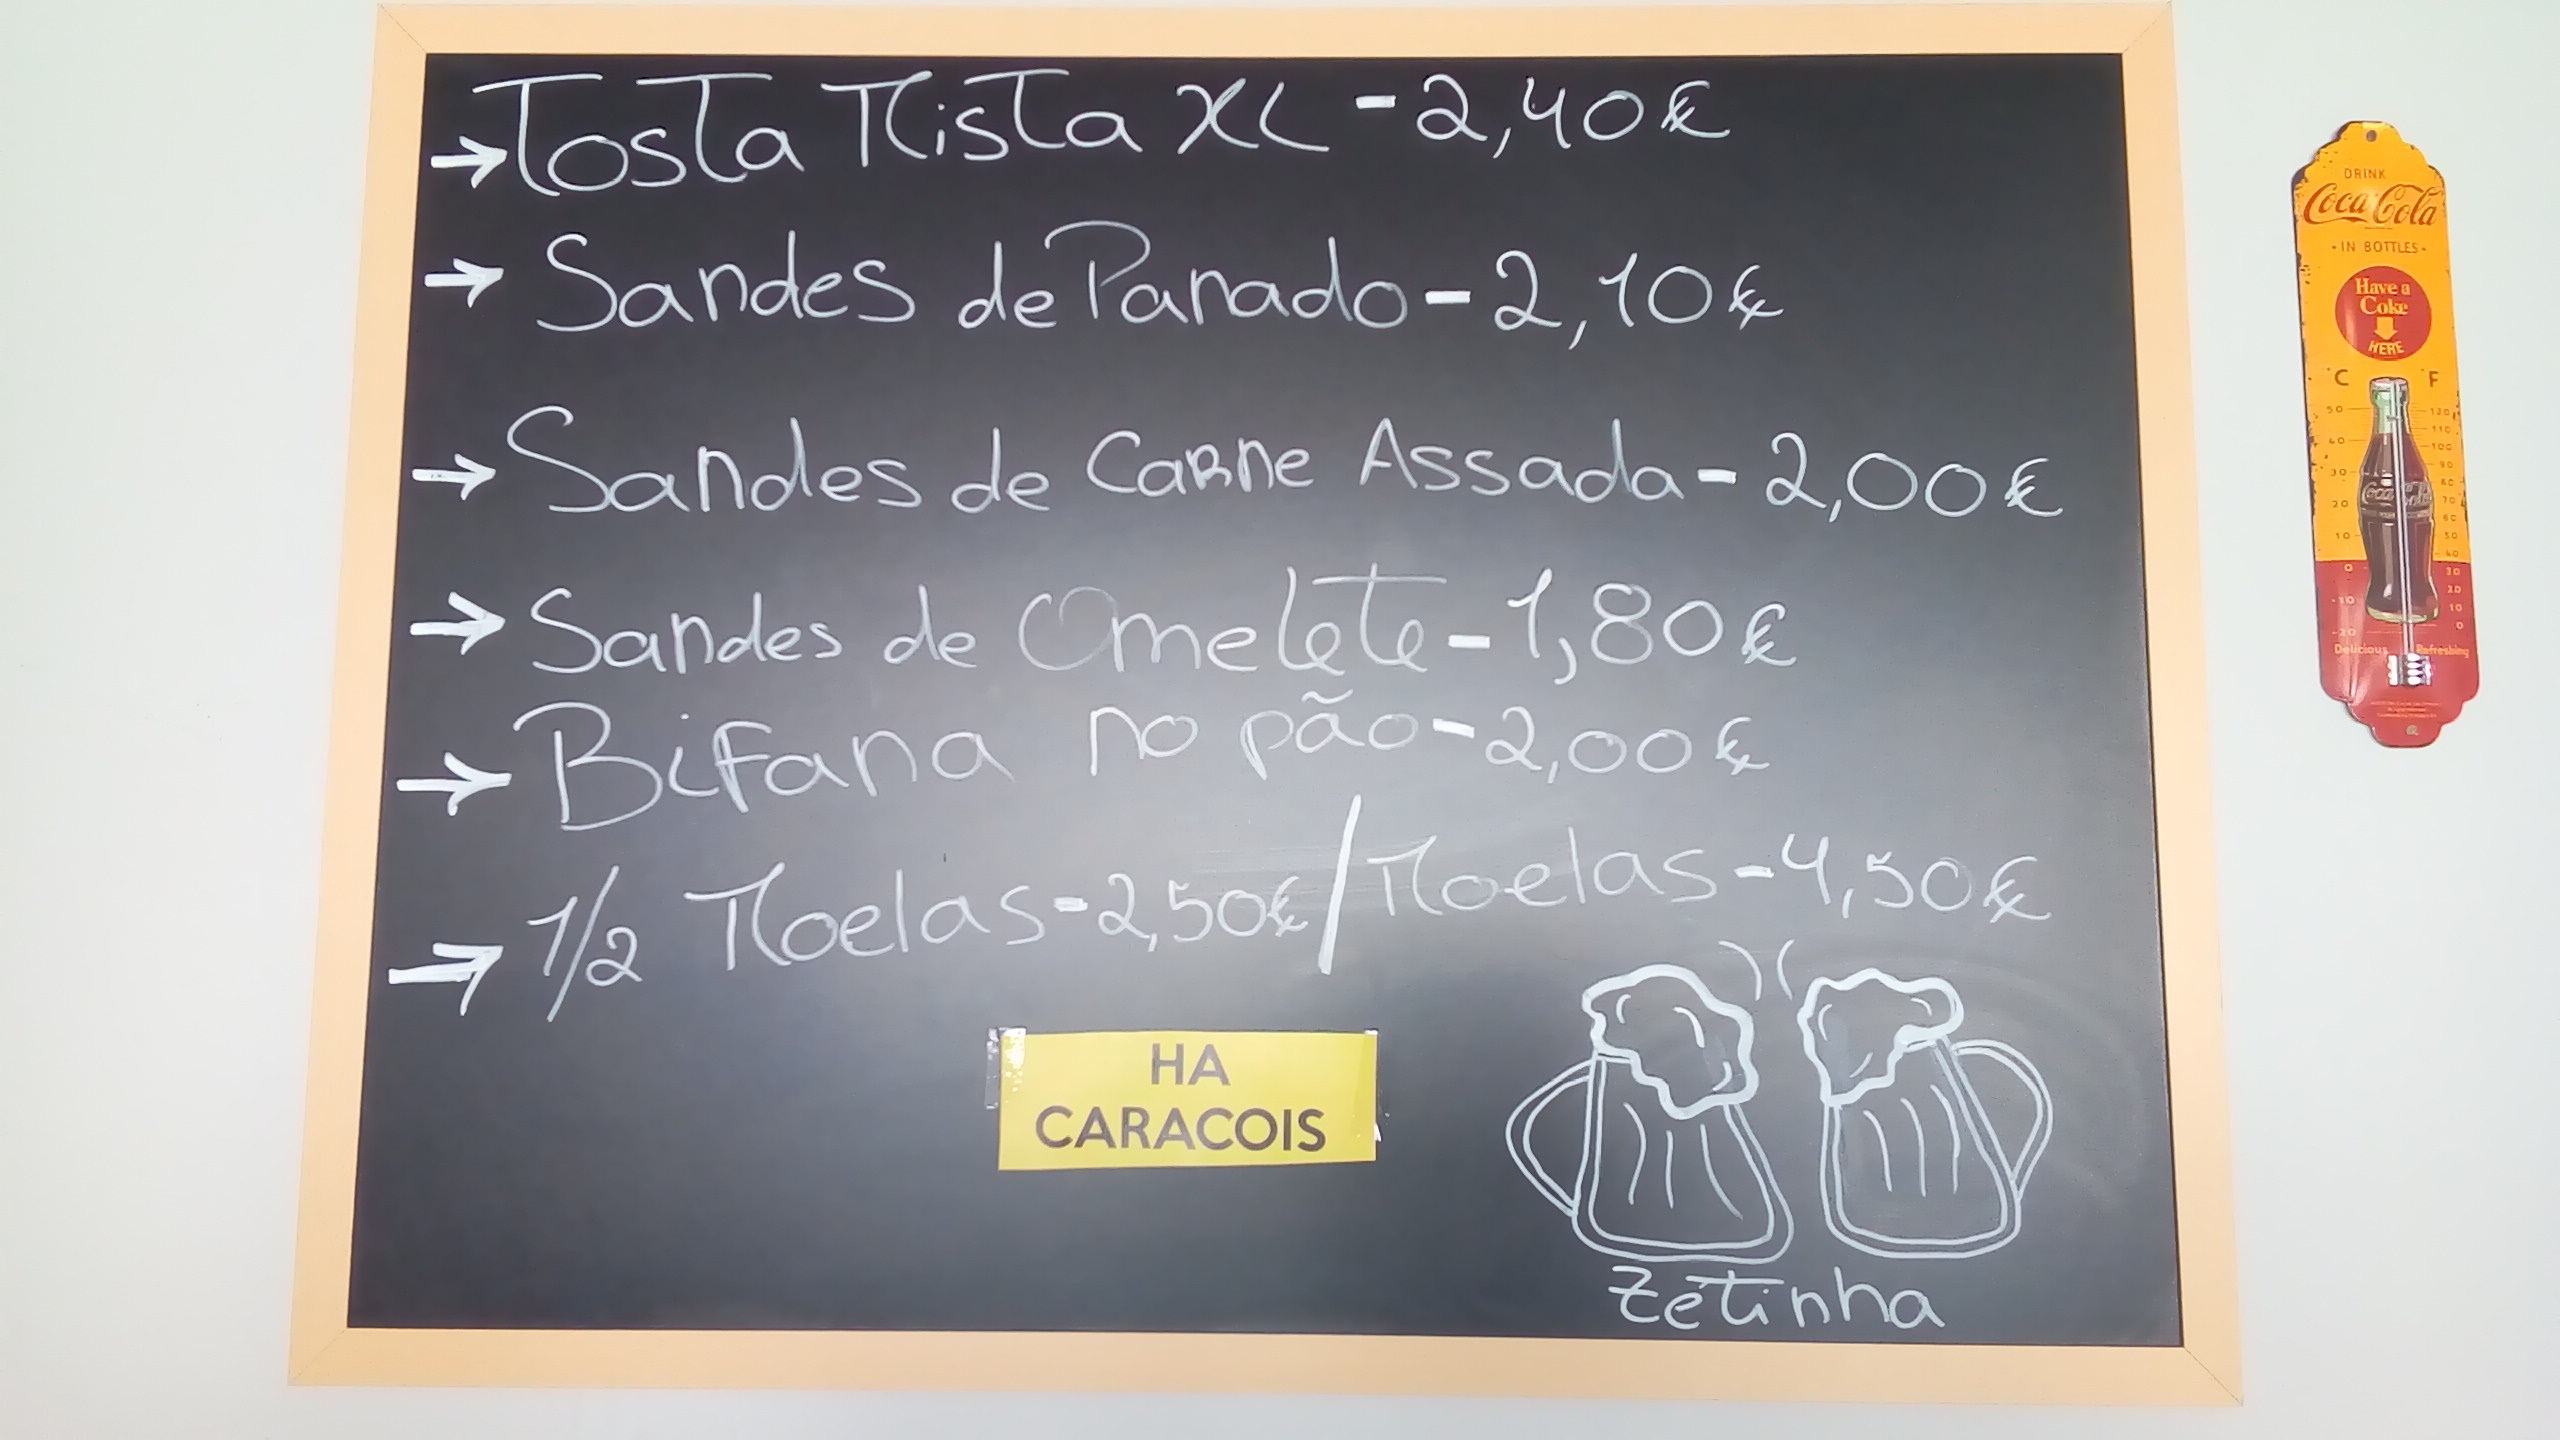 → Tosta Mista XL - 2,40€
→ Sandes de Panado - 2,10€
→ Sandes de Carne Assada - 2,00€
→ Sandes de Omelete - 1,80€
→ Bifana no pão - 2,00€
→ 1/2 Moelas - 2,50€ / Moelas - 4,50€
HA
CARACOIS
Zétinha
DRINK
Coca-Cola
- IN BOTTLES -
Have a
Coke
HERE
C F
50 120
110
40 100
90
30 80
20 70
60
10 50
40
0 30
20
-10 10
-20 0
Coca-Cola
Delicious Refreshing